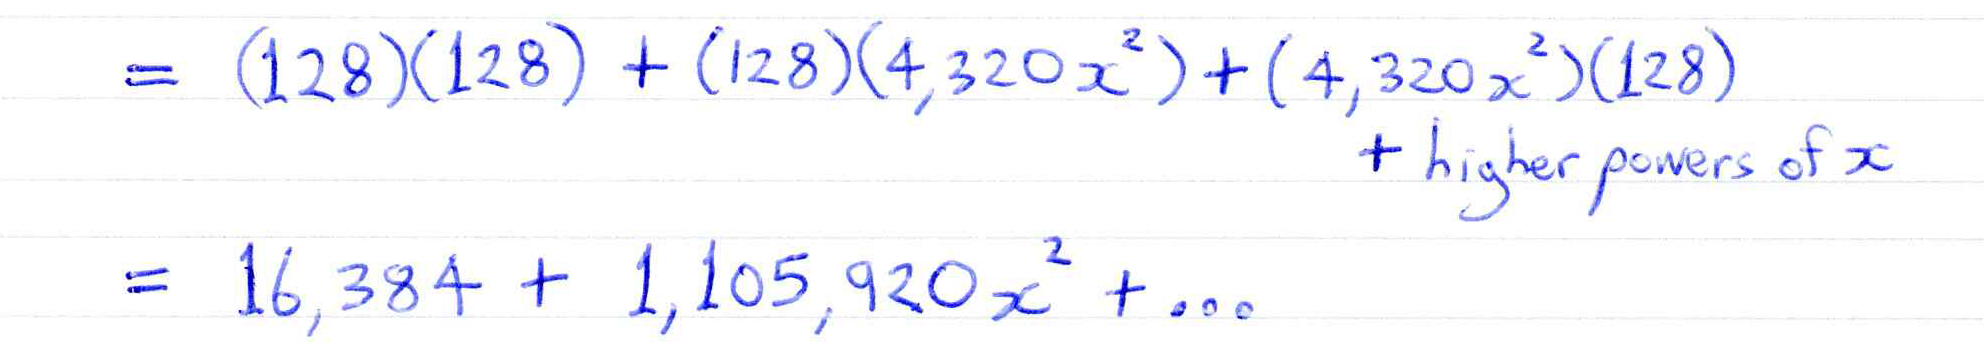 = (128)(128) + (128)(4,320x²) + (4,320x²)(128)
+ higher powers of x
= 16,384 + 1,105,920x² + ...